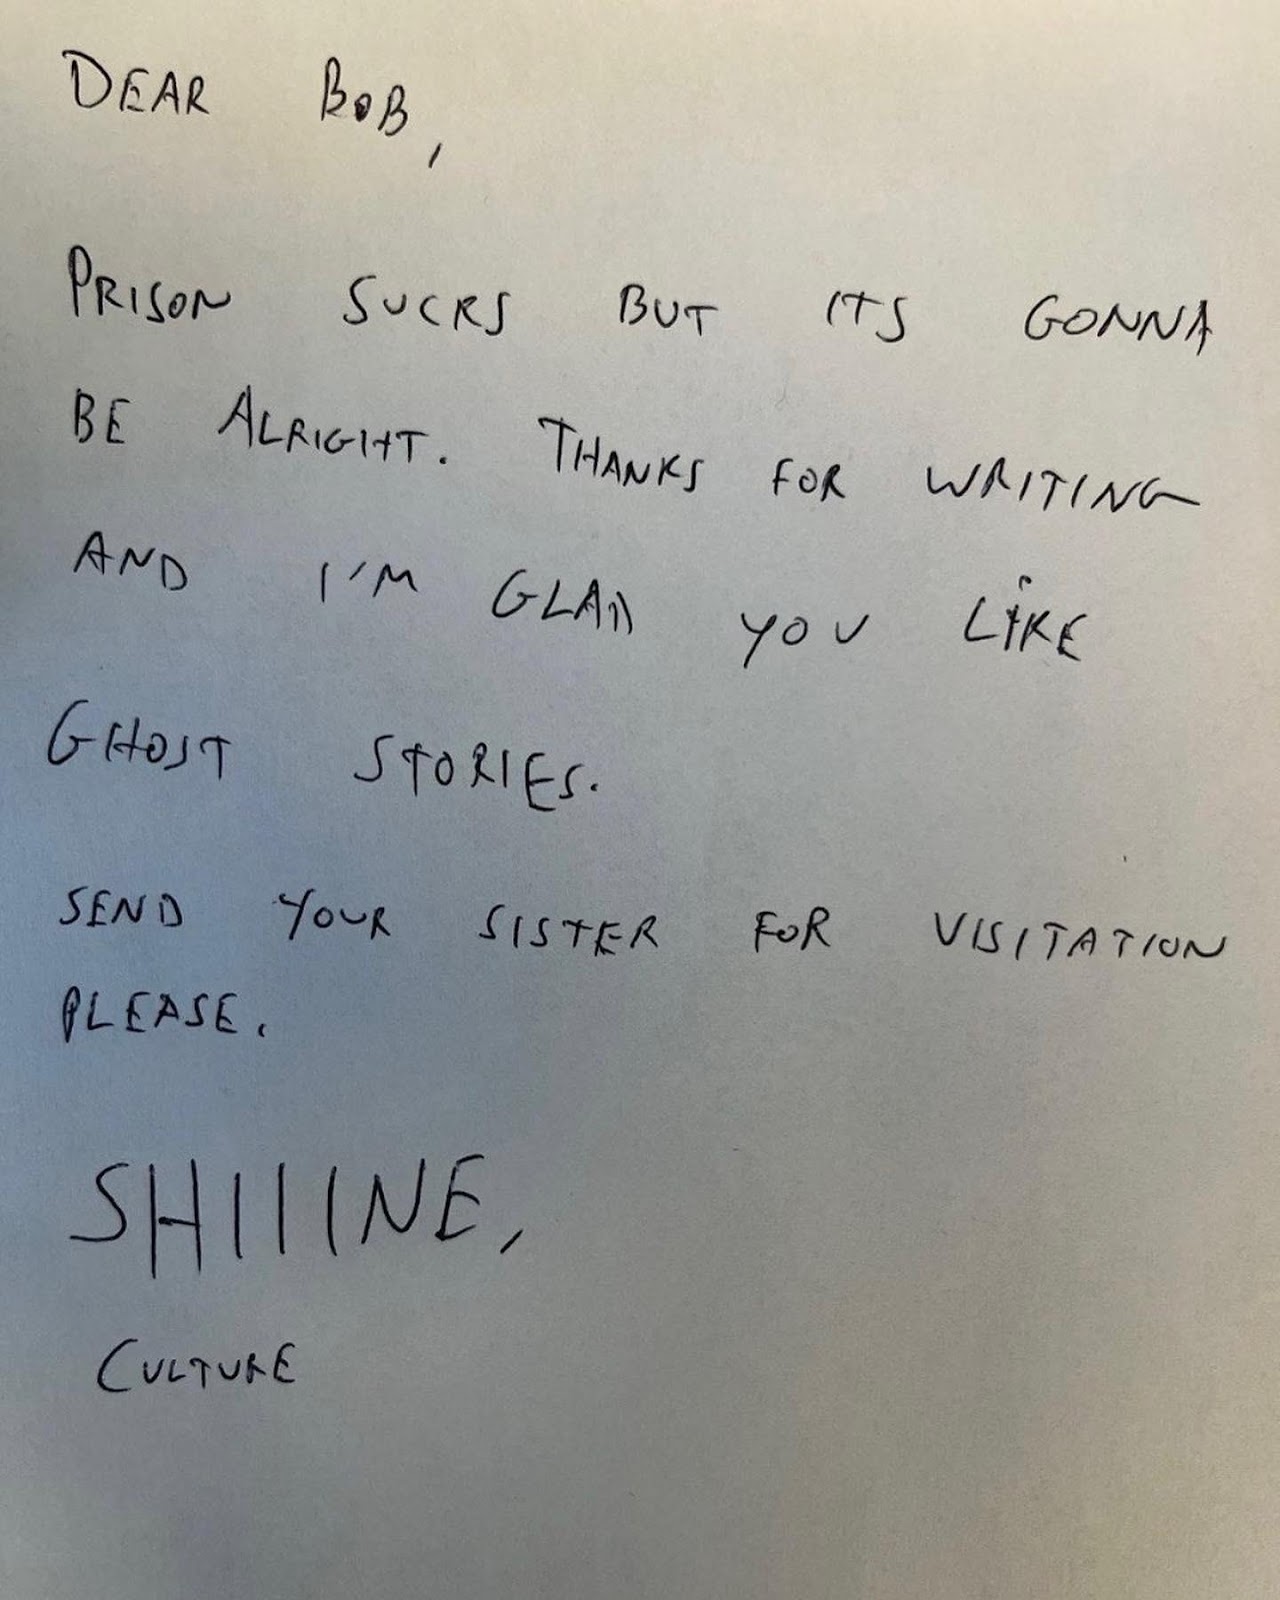 DEAR BOB,
PRISON SUCKS BUT ITS GONNA
BE ALRIGHT. THANKS FOR WRITING
AND I'M GLAD YOU LIKE
GHOST STORIES.
SEND YOUR SISTER FOR VISITATION
PLEASE.
SHIIINE,
CULTURE